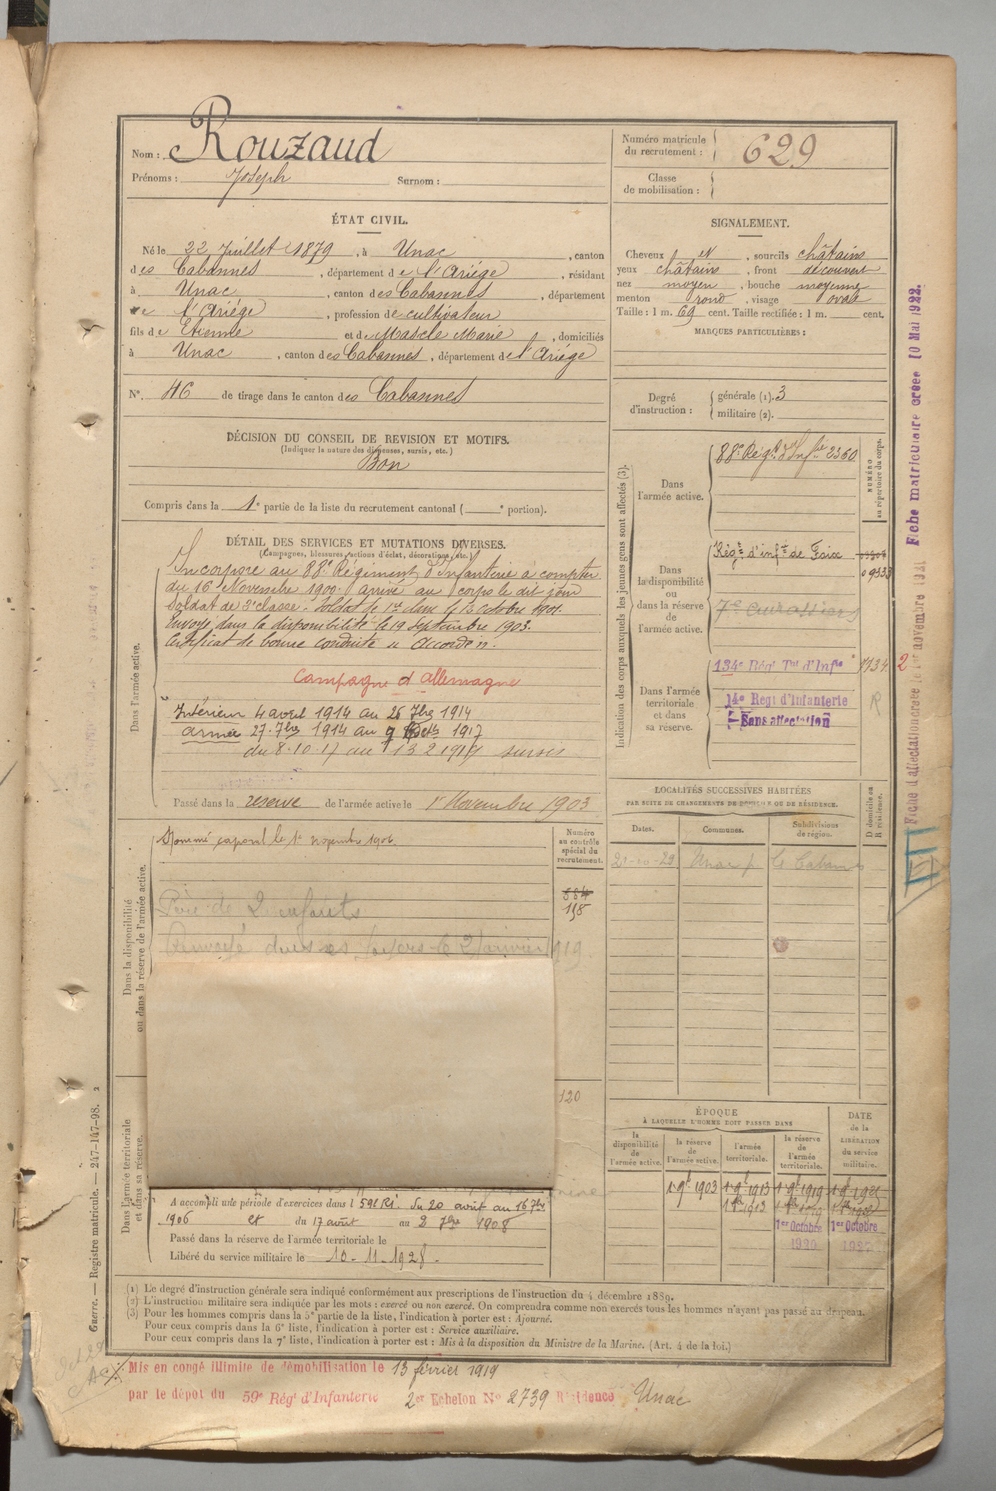 Nom : Rouzaud
Prénoms : Joseph Surnom :
Numéro matricule du recrutement : 629
Classe de mobilisation :
ÉTAT CIVIL.
Né le 22 Juillet 1879, à Unac, canton
des Cabannes, département de l'Ariége, résidant
à Unac, canton des Cabannes, département
de l'Ariége, profession de cultivateur
fils de Etienne et de Mascle Marie, domiciliés
à Unac, canton des Cabannes, département de l'Ariége
N°. 46 de tirage dans le canton des Cabannes
SIGNALEMENT.
Cheveux N, sourcils châtains
yeux châtains, front découvert
nez moyen, bouche moyenne
menton rond, visage ovale
Taille : 1 m. 69 cent. Taille rectifiée : 1 m. cent.
MARQUES PARTICULIÈRES :
DÉCISION DU CONSEIL DE REVISION ET MOTIFS.
(Indiquer la nature des dispenses, sursis, etc.)
Bon
Compris dans la 1e partie de la liste du recrutement cantonal ( e portion).
Degré d'instruction : générale (1). 3
militaire (2).
DÉTAIL DES SERVICES ET MUTATIONS DIVERSES.
(Campagnes, blessures, actions d'éclat, décorations, etc.)
Dans l'armée active.
Incorporé au 88e Régiment d'Infanterie à compter
du 16 Novembre 1900. arrivé au corps le dit jour
Soldat de 2e classe. Soldat de 1re classe le 13 octobre 1901.
Envoyé dans la disponibilité le 19 Septembre 1903.
Certificat de bonne conduite "accordé".
Campagne d'Allemagne
Intérieur 4 avril 1914 au 26 7bre 1914
armée 27. 7bre 1914 au 1917
du 8-10-17 au 13 2 1919 sursis
Passé dans la réserve de l'armée active le 1r Novembre 1903
Indication des corps auxquels les jeunes gens sont affectés (3).
Dans l'armée active.
88e Régt d'Infie 2360
NUMÉRO au répertoire du corps.
Dans la disponibilité ou dans la réserve de l'armée active.
Régt d'infie de Foix
09333
7e cuirassiers
Dans l'armée territoriale et dans sa réserve.
134e Régt Tal d'Infie 1134 2
14e Regt d'Infanterie R
Sans affectation
Dans la disponibilité ou dans la réserve de l'armée active.
Nommé caporal le 1er novembre 1906.
Père de 2 enfants
Renvoyé dans ses foyers le 2 janvier 1919.
Numéro au contrôle spécial du recrutement.
584
198
120
LOCALITÉS SUCCESSIVES HABITÉES
PAR SUITE DE CHANGEMENTS DE DOMICILE OU DE RÉSIDENCE.
Dates. Communes. Subdivisions de région. D domicile ou R résidence.
Unac
Dans l'armée territoriale et dans sa réserve.
A accompli une période d'exercices dans l 59e RI du 20 août au 16 7bre
1906 et du 17 août au 8 7bre 1908
Passé dans la réserve de l'armée territoriale le
Libéré du service militaire le 10-11-1928.
ÉPOQUE
À LAQUELLE L'HOMME DOIT PASSER DANS
la disponibilité de l'armée active.
la réserve de l'armée active.
l'armée territoriale.
la réserve de l'armée territoriale.
DATE de la LIBÉRATION du service militaire.
1 9bre 1903 1 9bre 1913 1 9bre 1919
1er Octobre 1er Octobre
1920
(1) Le degré d'instruction générale sera indiqué conformément aux prescriptions de l'instruction du 4 décembre 1889.
(2) L'instruction militaire sera indiquée par les mots : exercé ou non exercé. On comprendra comme non exercés tous les hommes n'ayant pas passé au drapeau.
(3) Pour les hommes compris dans la 5e partie de la liste, l'indication à porter est : Ajourné.
Pour ceux compris dans la 6e liste, l'indication à porter est : Service auxiliaire.
Pour ceux compris dans la 7e liste, l'indication à porter est : Mis à la disposition du Ministre de la Marine. (Art. 4 de la loi.)
Mis en congé illimité de démobilisation le 13 février 1919
par le dépôt du 59e Régt d'Infanterie 2er Echelon No 2739 Résidence Unac
Guerre. — Registre matricule. — 247-147-98. 2
Fiche d'affectation créée le 1er novembre 1921
Fiche matriculaire créée 10 Mai 1922.